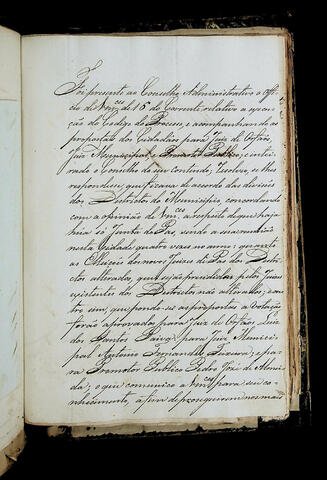 Foi presente ao Conselho Administrativo o Offi-
cio de Vm.ces de 16 do Corrente relativo a execu-
ção do Codigo do Processo, e acompanhando as
propostas de Cidadãos para Juiz de Orfãos,
Juiz Municipal, e Promotor Publico; e intei-
rado o Conselho de seu contendo, resolveo, se lhes
respondesse, que ficava de acordo das divisões
dos Destrictos do Municipio, concordando
com a opinião de Vm.ces a respeito de que haja
huma só Junta de Paz, sendo a sua reunião
nesta Cidade quatro vezes no anno: quanto
as Elleições dos novos Juizes de Paz dos Destri-
ctos alterados, que sejão prezididas pelos Juizes
existentes dos Destrictos não alterados; ou-
tro sim, que pondo-se as propostas a votação
forão aprovados para Juiz de Orfãos, Luiz
dos Santos Paiva, para Juiz Munici-
pal Antonio Fernandes Teixeira; e pa-
ra Promotor Publico Pedro José de Almei-
da; o que comunico a Vm.ces para seu co-
nhecimento, a fim de proseguirem nos mais